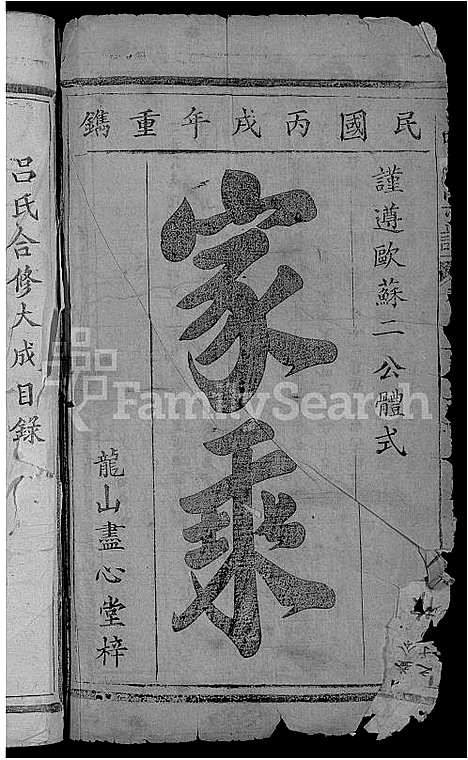 民國丙戌年重鐫
謹遵歐蘇二公體式
家乘
龍山盡心堂梓
呂氏合修大成目錄
FamilySearch